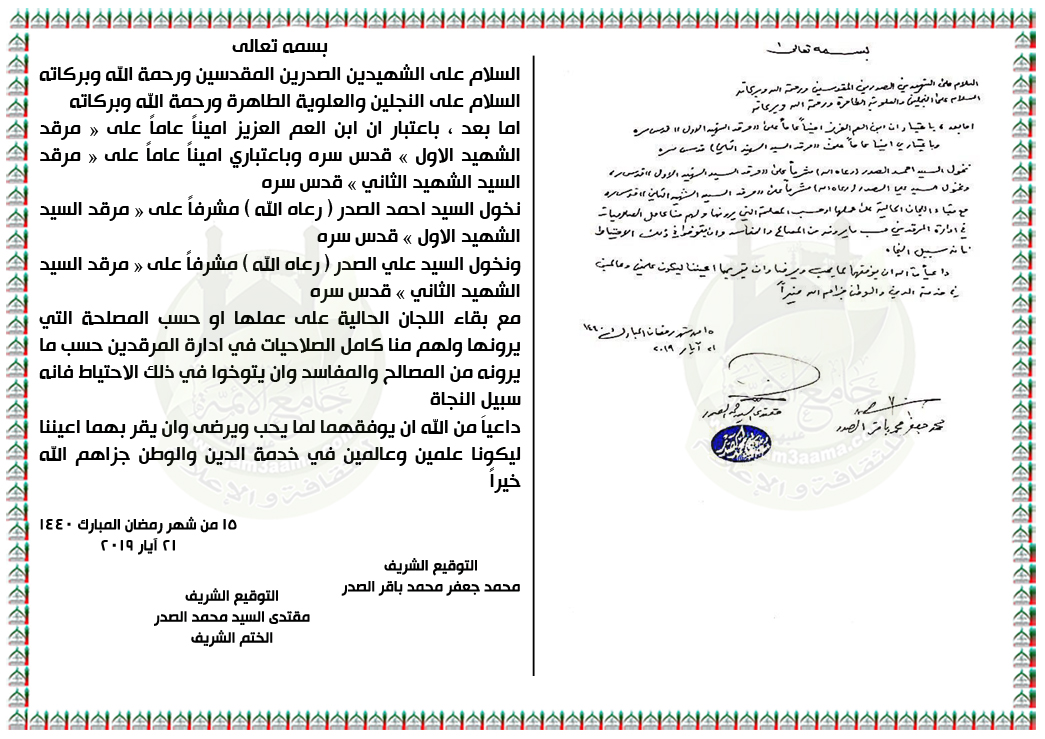 بسمه تعالى
السلام على الشهيدين الصدرين المقدسين ورحمة الله وبركاته
السلام على النجلين والعلوية الطاهرة ورحمة الله وبركاته
اما بعد ، باعتبار ان ابن العم العزيز اميناً عاماً على « مرقد
الشهيد الاول » قدس سره وباعتباري اميناً عاماً على « مرقد
السيد الشهيد الثاني » قدس سره
نخول السيد احمد الصدر ( رعاه الله ) مشرفاً على « مرقد السيد
الشهيد الاول » قدس سره
ونخول السيد علي الصدر ( رعاه الله ) مشرفاً على « مرقد السيد
الشهيد الثاني » قدس سره
مع بقاء اللجان الحالية على عملها او حسب المصلحة التي
يرونها ولهم منا كامل الصلاحيات في ادارة المرقدين حسب ما
يرونه من المصالح والمفاسد وان يتوخوا في ذلك الاحتياط فانه
سبيل النجاة
داعياً من الله ان يوفقهما لما يحب ويرضى وان يقر بهما اعيننا
ليكونا علمين وعالمين في خدمة الدين والوطن جزاهم الله
خيراً
١٥ من شهر رمضان المبارك ١٤٤٠
٢١ آيار ٢٠١٩
التوقيع الشريف
محمد جعفر محمد باقر الصدر
التوقيع الشريف
مقتدى السيد محمد الصدر
الختم الشريف
بسمه تعالى
السلام على الشهيدين الصدرين المقدسين ورحمة الله وبركاته
السلام على النجلين والعلوية الطاهرة ورحمة الله وبركاته
اما بعد ، باعتبار ان ابن العم العزيز اميناً عاماً على « مرقد السيد الشهيد الاول » قدس سره
وباعتباري اميناً عاماً على « مرقد السيد الشهيد الثاني » قدس سره
نخول السيد احمد الصدر (رعاه الله) مشرفاً على « مرقد السيد الشهيد الاول » قدس سره
ونخول السيد علي الصدر (رعاه الله) مشرفاً على « مرقد السيد الشهيد الثاني » قدس سره
مع بقاء اللجان الحالية على عملها او حسب المصلحة التي يرونها ولهم منا كامل الصلاحيات
في ادارة المرقدين حسب ما يرونه من المصالح والمفاسد وان يتوخوا في ذلك الاحتياط
فانه سبيل النجاة
داعياً من الله ان يوفقهما لما يحب ويرضى وان يقر بهما اعيننا ليكونا علمين وعالمين
في خدمة الدين والوطن جزاهم الله خيراً
١٥ من شهر رمضان المبارك ١٤٤٠
٢١ آيار ٢٠١٩
مقتدى السيد محمد الصدر
محمد جعفر محمد باقر الصدر
جامع الأئمة